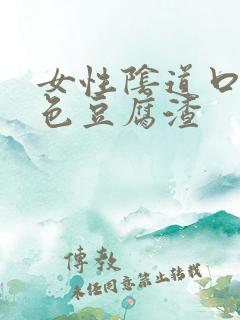 女性陰道口
色豆腐渣
傳敖
未经同意禁止转载